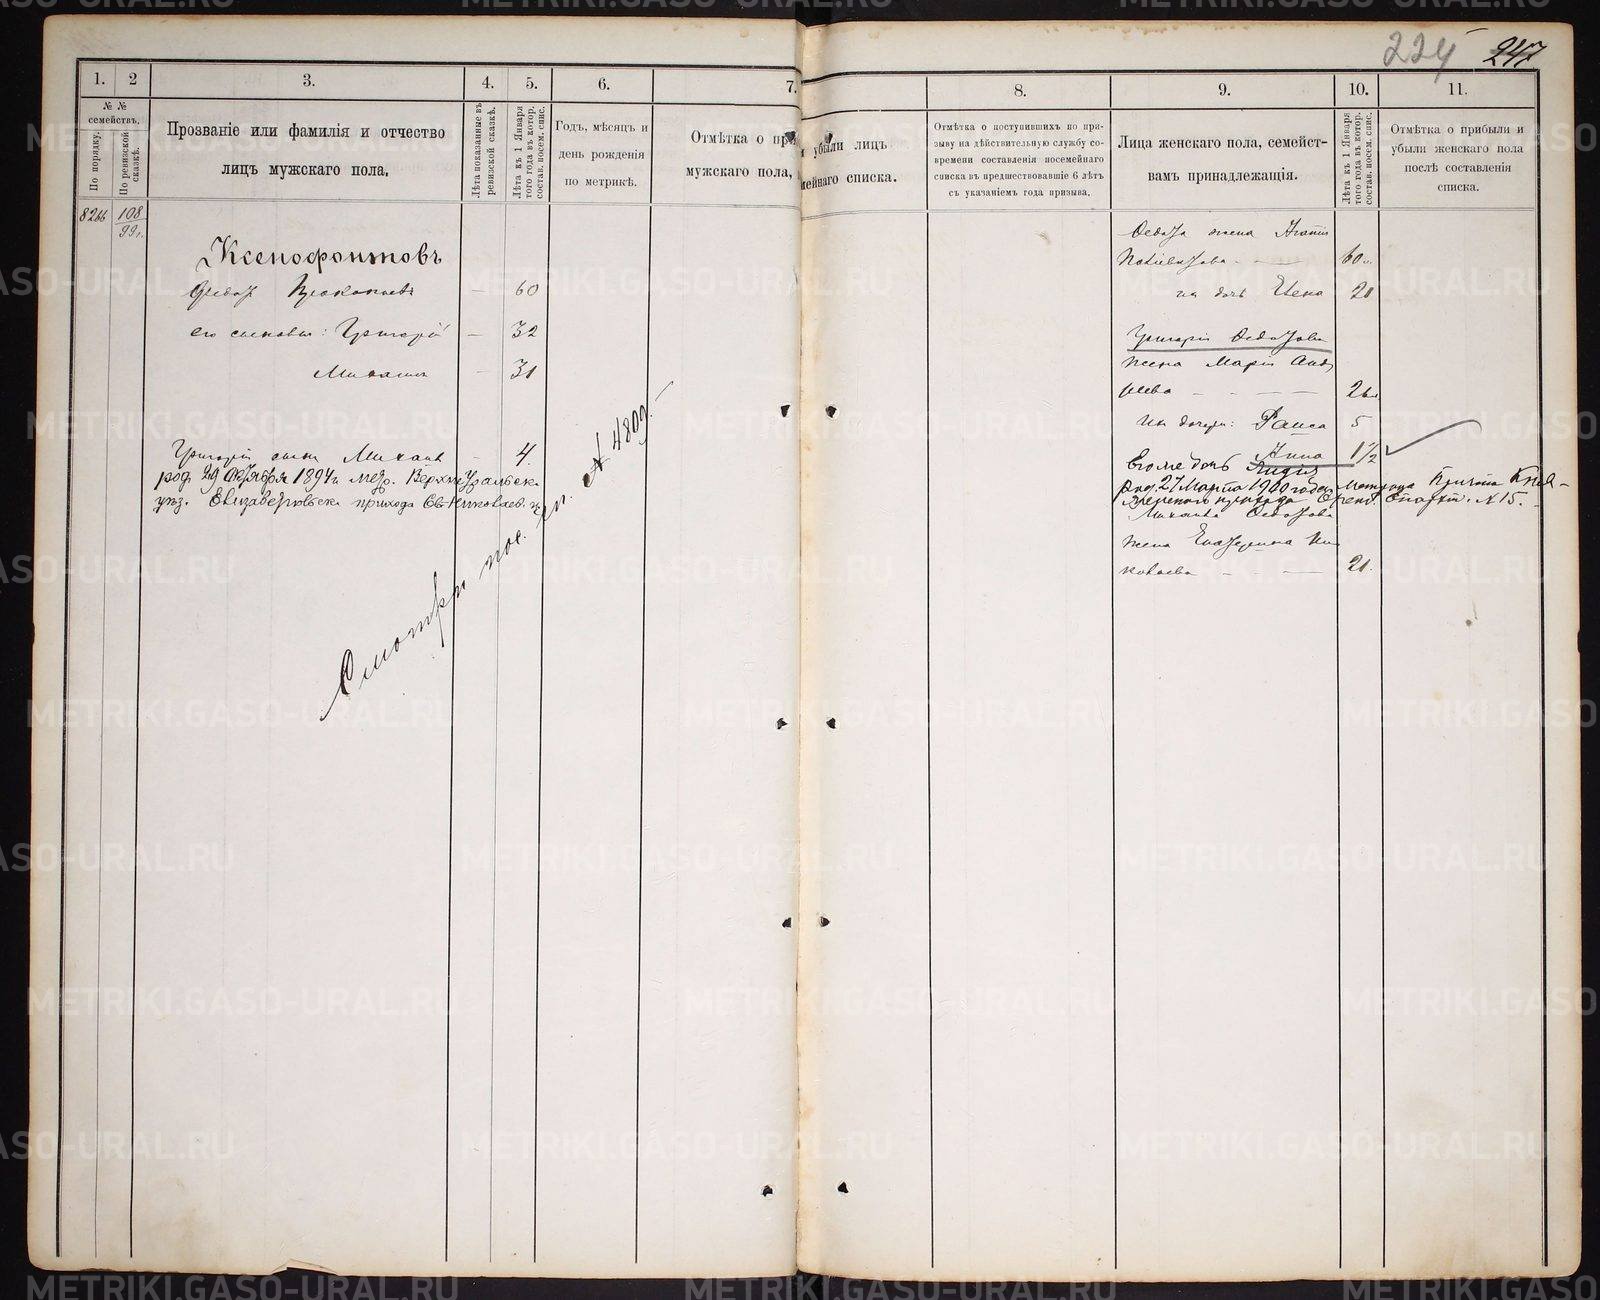 224 247
1.
2
3.
4.
5.
6.
7.
8.
9.
10.
11.
№ №
семействъ.
По порядку.
По ревизской
сказкѣ.
Прозваніе или фамилія и отчество
лицъ мужскаго пола.
Лѣта показанные въ
ревизской сказкѣ.
Лѣта къ 1 Января
того года въ котор.
состав. посем. спис.
Годъ, мѣсяцъ и
день рожденія
по метрикѣ.
Отмѣтка о при убыли лицъ
мужскаго пола, мейнаго списка.
Отмѣтка о поступившихъ по при-
зыву на дѣйствительную службу со-
времени составленія посемейнаго
списка въ предшествовавшіе 6 лѣтъ
съ указаніемъ года призыва.
Лица женскаго пола, семейст-
вамъ принадлежащія.
Лѣта къ 1 Января
того года въ котор.
состав. посем. спис.
Отмѣтка о прибыли и
убыли женскаго пола
послѣ составленія
списка.
8266 108
99г.
Ксенофонтовъ
Ѳедоръ Прокопьевъ — 60
его сыновья: Григорій — 32
Михаилъ — 31
Григорій сынъ Михаил — 4.
род. 29 Октября 1894г. мер. Верхнеуральска
уѣз. Елизаветовска прихода Св. Николаев. ц.
Смотри пос. сп. № 4809.
Ѳедора жена Агапія
60
их дочь Елена 20
Григорія Ѳедорова
жена Марія Анд
реева — — — 26
их дочери: Раиса 5
Анна 1½
род. 27 Марта 1900 года Метрика Причта
прихода Оренб. Епархіи. № 15.
Михаила Ѳедорова
жена Екатерина Ни
колаева — — — 20.
METRIKI.GASO-URAL.RU